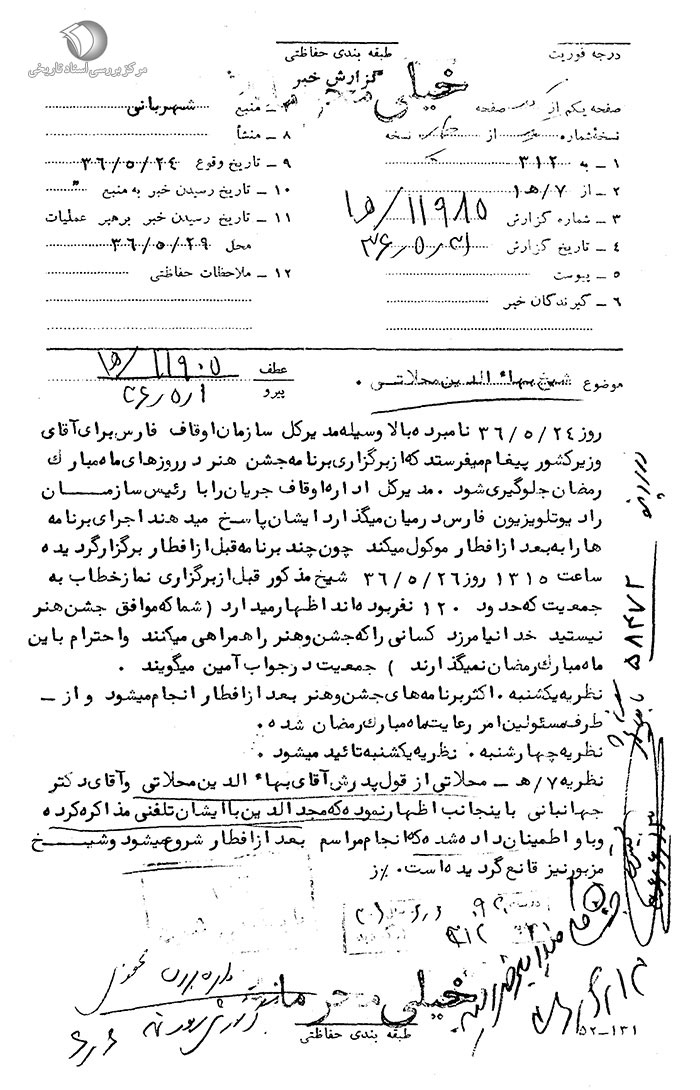 مرکز بررسی اسناد تاریخی
درجه فوریت
طبقه بندی حفاظتی
گزارش خبر
خیلی محرمانه
صفحه یکم از صفحه
نسخه شماره از نسخه
۱ ـ به ۳۱۲
۲ ـ از ۷ / ه‍ ۱
۳ ـ شماره گزارش ۱۱۹۸۵ / ه‍ ۱
۴ ـ تاریخ گزارش ۳۶/۵/۳۱
۵ ـ پیوست
۶ ـ گیرندگان خبر
۷ ـ منبع شهربانی
۸ ـ منشأ
۹ ـ تاریخ وقوع ۳۶/۵/۲۴
۱۰ ـ تاریخ رسیدن خبر به منبع "
۱۱ ـ تاریخ رسیدن خبر برهبر عملیات
محل ۳۶/۵/۲۹
۱۲ ـ ملاحظات حفاظتی
موضوع شیخ بهاء الدین محلاتی .
عطف ۱۱۹۰۵ / ه‍ ۱
پیرو
روز ۳۶/۵/۲۴ نامبرده بالا وسیله مدیرکل سازمان اوقاف فارس برای آقای
وزیر کشور پیغام میفرستد که از برگزاری برنامه جشن هنر در روزهای ماه مبارک
رمضان جلوگیری شود . مدیرکل اداره اوقاف جریان را با رئیس سازمــــان
رادیو تلویزیون فارس در میان میگذارد ایشان پاسخ میدهند اجرای برنامه
ها را به بعد از افطار موکول میکند چون چند برنامه قبل از افطار برگزار گردیده
ساعت ۱۳۱۵ روز ۳۶/۵/۲۶ شیخ مذکور قبل از برگزاری نماز خطاب به
جمعیت که حدود ۱۲۰ نفر بوده اند اظهار میدارد ( شما که موافق جشن هنر
نیستید خدا نیامرزد کسانی را که جشن و هنر را همراهی میکنند و احترام باین
ماه مبارک رمضان نمیگذارند ) جمعیت در جواب آمین میگویند .
نظریه یکشنبه . اکثر برنامه های جشن و هنر بعد از افطار انجام میشود و از ـ
طرف مسئولین امر رعایت ماه مبارک رمضان شده .
نظریه چهارشنبه . نظریه یکشنبه تائید میشود .
نظریه ۷/ه‍ ـ محلاتی از قول پدرش آقای بهاء الدین محلاتی و آقای دکتر
جهانبانی باینجانب اظهار نموده که مجد الدین با ایشان تلفنی مذاکره کرده
و باو اطمینان داده شده که انجام مراسم بعد از افطار شروع میشود و شیــــخ
مزبور نیز قانع گردیده است . ٪ز
۵۸۴۷۲
۳۱۲
خیلی محرمانه
طبقه بندی حفاظتی
۵۲-۱۳۱